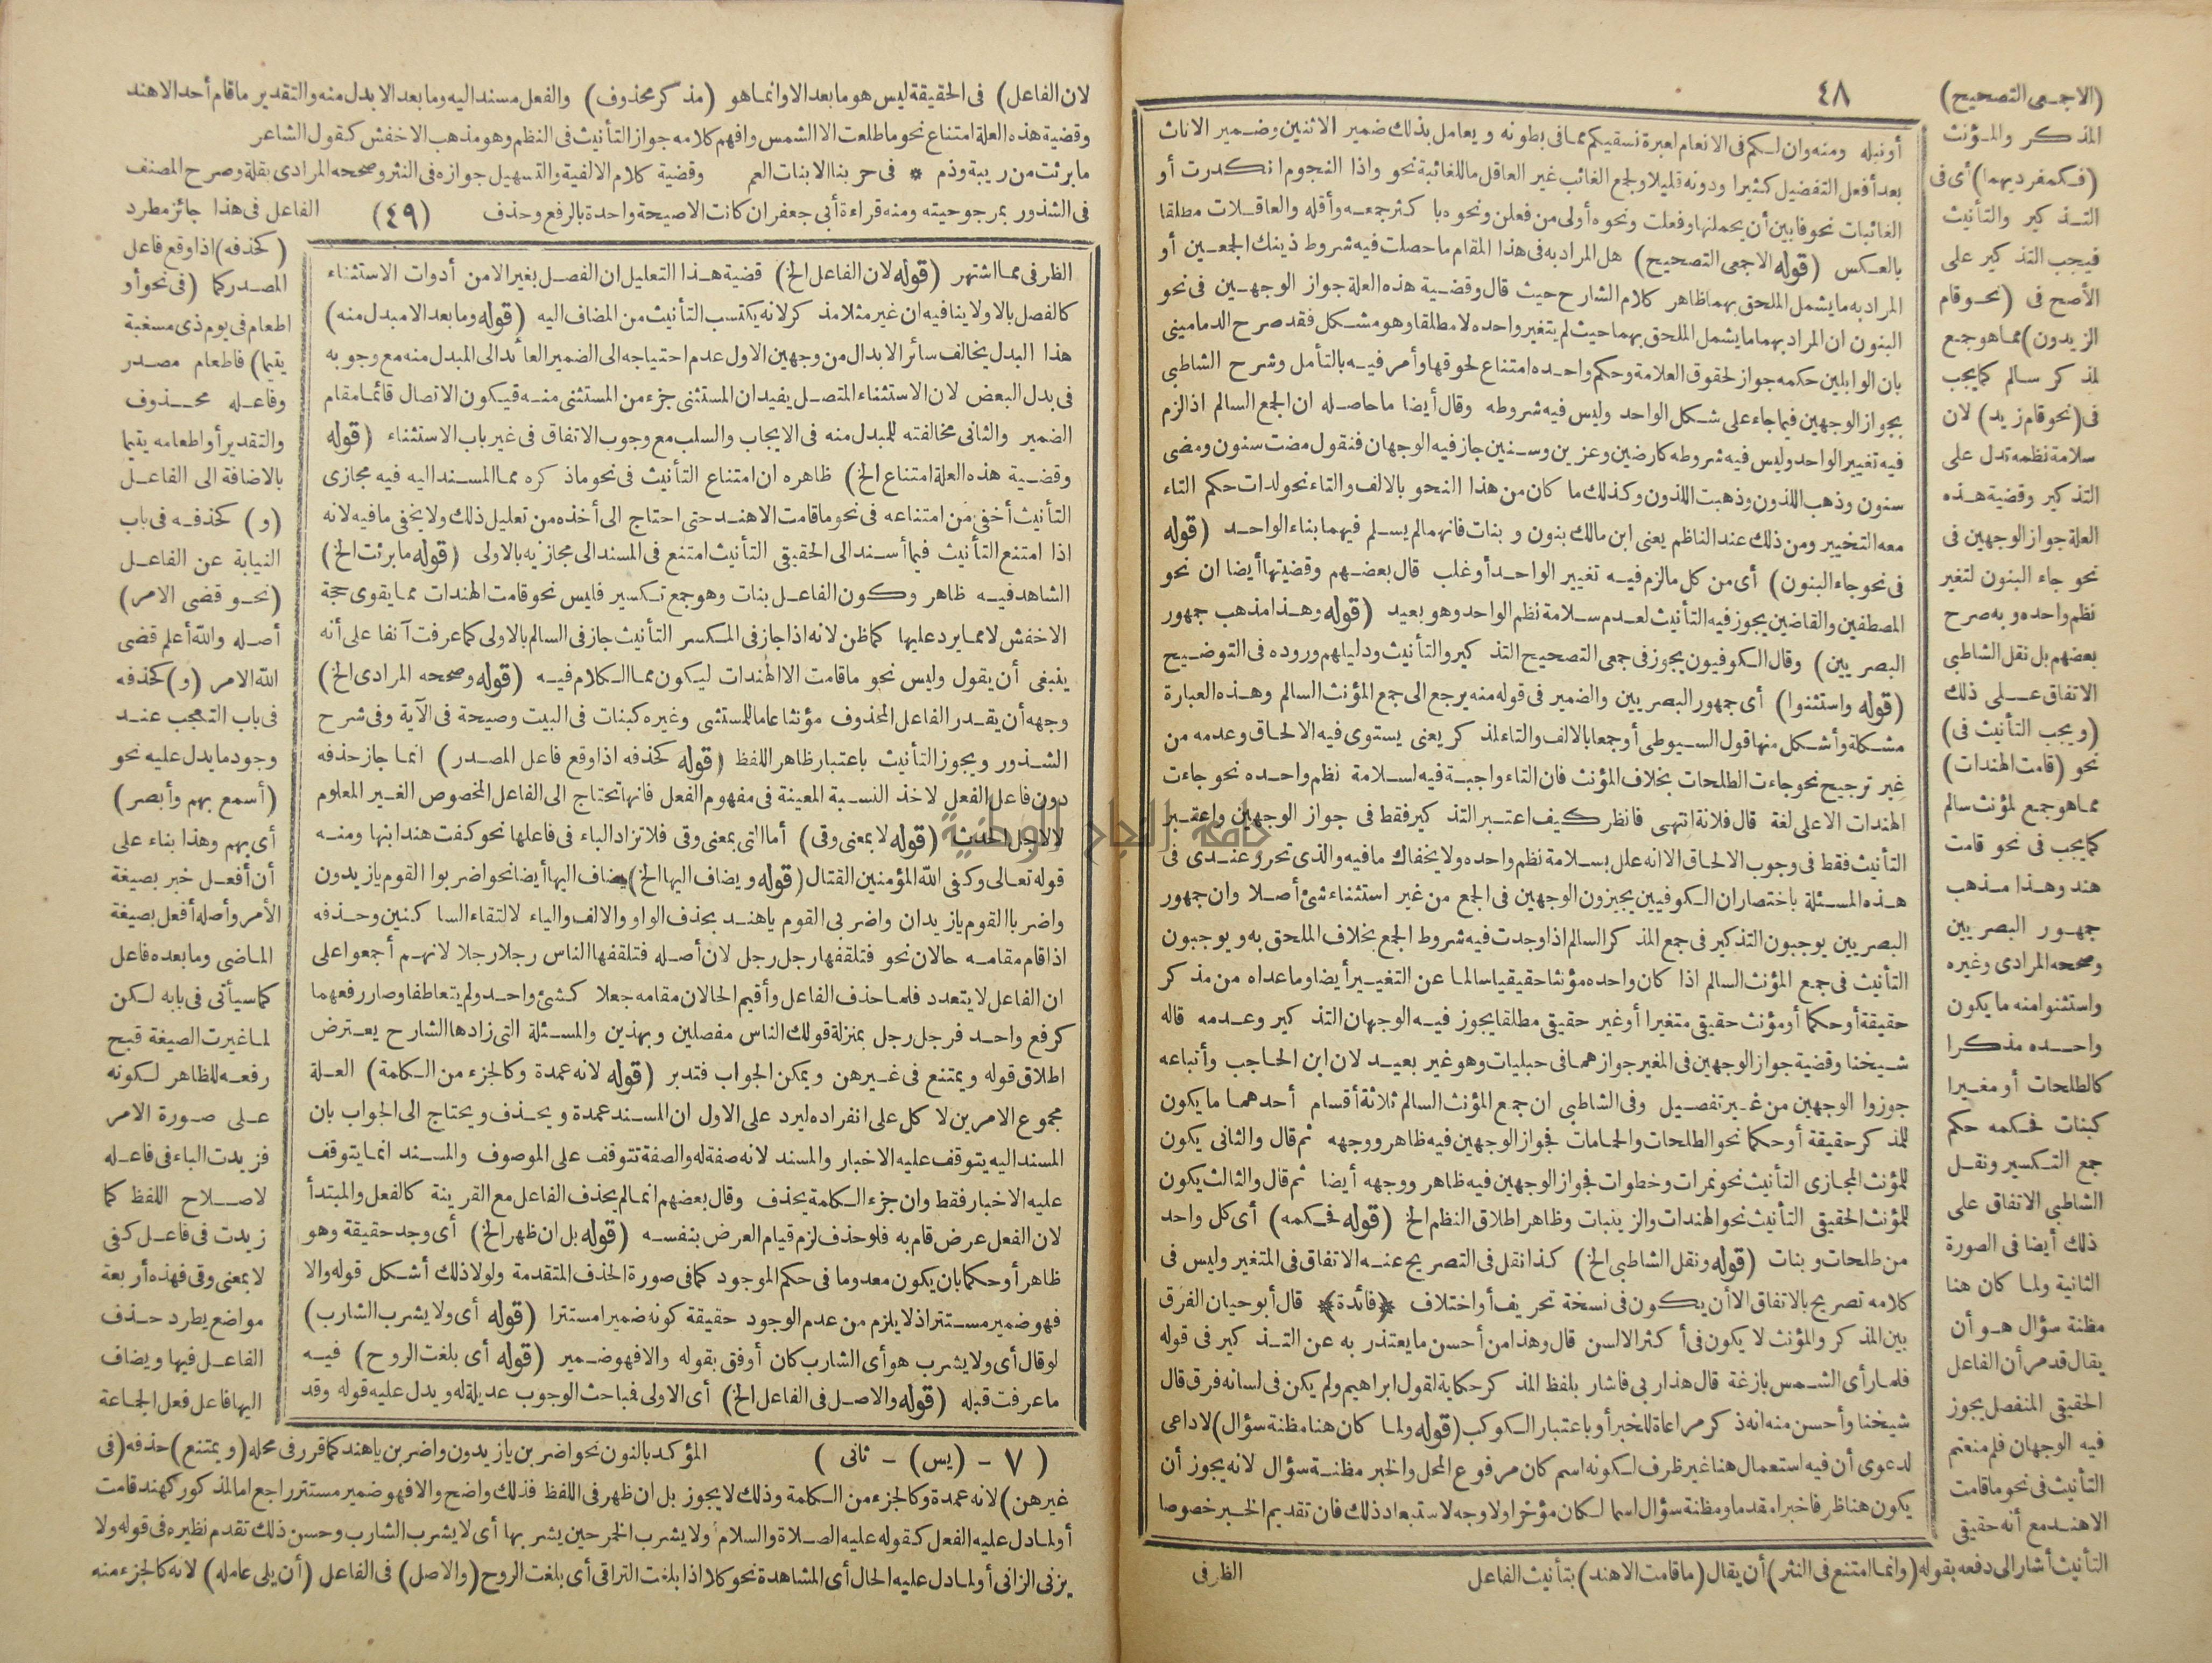 ٤٨
(الا جمعى التصحيح)
المذكر والمؤنث
(فكمفرديهما) أى فى
التذكير والتأنيث
فيجب التذكير على
الأصح فى (نحو قام
الزيدون) مما هو جمع
لمذكر سالم كما يجب
فى (نحو قام زيد) لان
سلامة نظمه تدل على
التذكير وقضية هذه
العلة جواز الوجهين فى
نحو جاء البنون لتغير
نظم واحده وبه صرح
بعضهم بل نقل الشاطبى
الاتفاق على ذلك
(ويجب التأنيث فى)
نحو (قامت الهندات)
مما هو جمع لمؤنث سالم
كما يجب فى نحو قامت
هند وهذا مذهب
جمهور البصريين
وصححه المرادى وغيره
واستثنوا منه ما يكون
واحده مذكرا
كالطلحات أو مغيرا
كبنات فحكمه حكم
جمع التكسير ونقل
الشاطبى الاتفاق على
ذلك أيضا فى الصورة
الثانية ولما كان هنا
مظنة سؤال هو أن
يقال قد مر أن الفاعل
الحقيقى المنفصل يجوز
فيه الوجهان فلم منعتم
التأنيث فى نحو ما قامت
الا هند مع أنه حقيقى
التأنيث أشار الى دفعه بقوله (وانما امتنع فى النثر) أن يقال (ما قامت الا هند) بتأنيث الفاعل
أونبله ومنه وان لكم فى الانعام لعبرة نسقيكم مما فى بطونه ويعامل بذلك ضمير الاثنين وضمير الاناث
بعد أفعل التفضيل كثيرا ودونه قليلا ولجمع الغائب غير العاقل ما للغائبة نحو واذا النجوم انكدرت أو
الغائبات نحو فابين أن يحملنها وفعلت ونحوه أولى من فعلن ونحوه با كثر جمعه وأقله والعاقلات مطلقا
بالعكس (قوله الا جمعى التصحيح) هل المراد به فى هذا المقام ما حصلت فيه شروط ذينك الجمعين أو
المراد به ما يشمل الملحق بهما ظاهر كلام الشارح حيث قال وقضية هذه العلة جواز الوجهين فى نحو
البنون ان المراد بهما ما يشمل الملحق بهما حيث لم يتغير واحده لا مطلقا وهو مشكل فقد صرح الدمامينى
بان الوابلين حكمه جواز لحقوق العلامة وحكم واحده امتناع لحوقها وأمر فيه بالتأمل وشرح الشاطبى
بجواز الوجهين فيما جاء على شكل الواحد وليس فيه شروطه وقال أيضا ما حاصله ان الجمع السالم اذا لزم
فيه تغيير الواحد وليس فيه شروطه كارضين وعزين وسنين جاز فيه الوجهان فنقول مضت سنون ومضى
سنون وذهب اللذون وذهبت اللذون وكذلك ما كان من هذا النحو بالالف والتاء نحو لدات حكم التاء
معه التخيير ومن ذلك عند الناظم يعنى ابن مالك بنون وبنات فانهما لم يسلم فيهما بناء الواحد (قوله
فى نحو جاء البنون) أى من كل ما لزم فيه تغيير الواحد أو غلب قال بعضهم وقضيتها أيضا ان نحو
المصطفين والقاضين يجوز فيه التأنيث لعدم سلامة نظم الواحد وهو بعيد (قوله وهذا مذهب جمهور
البصريين) وقال الكوفيون يجوز فى جمعى التصحيح التذكير والتأنيث ودليلهم وروده فى التوضيح
(قوله واستثنوا) أى جمهور البصريين والضمير فى قوله منه يرجع الى جمع المؤنث السالم وهذه العبارة
مشكلة وأشكل منها قول السيوطى أو جمعا بالالف والتاء لمذكر يعنى يستوى فيه الالحاق وعدمه من
غير ترجيح نحو جاءت الطلحات بخلاف المؤنث فان التاء واجبة فيه لسلامة نظم واحده نحو جاءت
الهندات الا على لغة قال فلانة انتهى فانظر كيف اعتبر التذكير فقط فى جواز الوجهين واعتبر
التأنيث فقط فى وجوب الالحاق الا انه علل بسلامة نظم واحده ولا يخفاك ما فيه والذى تحرر عندى فى
هذه المسئلة باختصار ان الكوفيين يجيزون الوجهين فى الجمع من غير استثناء شئ أصلا وان جمهور
البصريين يوجبون التذكير فى جمع المذكر السالم اذا وجدت فيه شروط الجمع بخلاف الملحق به ويوجبون
التأنيث فى جمع المؤنث السالم اذا كان واحده مؤنثا حقيقيا سالما عن التغيير أيضا وما عداه من مذكر
حقيقة أو حكما أو مؤنث حقيقى متغيرا أو غير حقيقى مطلقا يجوز فيه الوجهان التذكير وعدمه قاله
شيخنا وقضية جواز الوجهين فى المغير جوازهما فى حبليات وهو غير بعيد لان ابن الحاجب وأتباعه
جوزوا الوجهين من غير تفصيل وفى الشاطبى ان جمع المؤنث السالم ثلاثة أقسام أحدهما ما يكون
للمذكر حقيقة أو حكما نحو الطلحات والحمامات فجواز الوجهين فيه ظاهر ووجهه ثم قال والثانى يكون
للمؤنث المجازى التأنيث نحو تمرات وخطوات فجواز الوجهين فيه ظاهر ووجهه أيضا ثم قال والثالث يكون
للمؤنث الحقيقى التأنيث نحو الهندات والزينبات وظاهر اطلاق النظم الخ (قوله فحكمه) أى كل واحد
من طلحات وبنات (قوله ونقل الشاطبى الخ) كذا نقل فى التصريح عنه الاتفاق فى المتغير وليس فى
كلامه تصريح بالاتفاق الا أن يكون فى نسخة تحريف أو اختلاف ﴿فائدة﴾ قال أبو حيان الفرق
بين المذكر والمؤنث لا يكون فى أكثر الالسن قال وهذا من أحسن ما يعتذر به عن التذكير فى قوله
فلما رأى الشمس بازغة قال هذا ربى فاشار بلفظ المذكر حكاية لقول ابراهيم ولم يكن فى لسانه فرق قال
شيخنا وأحسن منه انه ذكر مراعاة للخبر أو باعتبار الكوكب (قوله ولما كان هنا مظنة سؤال) لا داعى
لدعوى أن فيه استعمال هنا غير ظرف لكونه اسم كان مرفوع المحل والخبر مظنة سؤال لانه يجوز أن
يكون هنا ظرفا خبرا مقدما ومظنة سؤال اسما لكان مؤخرا ولا وجه لاستبعاد ذلك فان تقديم الخبر خصوصا
الظرفى
لان الفاعل) فى الحقيقة ليس هو ما بعد الا وانما هو (مذكر محذوف) والفعل مسند اليه وما بعد الا بدل منه والتقدير ما قام أحد الا هند
وقضية هذه العلة امتناع نحو ما طلعت الا الشمس وافهم كلامه جواز التأنيث فى النظم وهو مذهب الاخفش كقول الشاعر
ما برئت من ريبة وذم * فى حربنا الا بنات العم وقضية كلام الالفية والتسهيل جوازه فى النثر وصححه المرادى بقلة وصرح المصنف
فى الشذور بمرجوحيته ومنه قراءة أبى جعفر ان كانت الا صيحة واحدة بالرفع وحذف (٤٩) الفاعل فى هذا جائز مطرد
(كحذفه) اذا وقع فاعل
المصدر كما (فى نحو أو
اطعام فى يوم ذى مسغبة
يتيما) فاطعام مصدر
وفاعله محذوف
والتقدير أو اطعامه يتيما
بالاضافة الى الفاعل
(و) كحذفه فى باب
النيابة عن الفاعل
(نحو قضى الامر)
أصله والله أعلم قضى
الله الامر (و) كحذفه
فى باب التعجب عند
وجود ما يدل عليه نحو
(أسمع بهم وأبصر)
أى بهم وهذا بناء على
أن أفعل خبر بصيغة
الأمر وأصله أفعل بصيغة
الماضى وما بعده فاعل
كما سيأتى فى بابه لكن
لما غيرت الصيغة قبح
رفعه للظاهر لكونه
على صورة الامر
فزيدت الباء فى فاعله
لاصلاح اللفظ كما
زيدت فى فاعل كفى
لا بمعنى وقى فهذه أربعة
مواضع يطرد حذف
الفاعل فيها ويضاف
اليها فاعل فعل الجماعة
الظرفى مما اشتهر (قوله لان الفاعل الخ) قضية هذا التعليل ان الفصل بغير الا من أدوات الاستثناء
كالفصل بالا ولا ينافيه ان غير مثلا مذكر لانه يكتسب التأنيث من المضاف اليه (قوله وما بعد الا مبدل منه)
هذا البدل يخالف سائر الابدال من وجهين الاول عدم احتياجه الى الضمير العائد الى المبدل منه مع وجوبه
فى بدل البعض لان الاستثناء المتصل يفيد ان المستثنى جزء من المستثنى منه فيكون الاتصال قائما مقام
الضمير والثانى مخالفته للمبدل منه فى الايجاب والسلب مع وجوب الاتفاق فى غير باب الاستثناء (قوله
وقضية هذه العلة امتناع الخ) ظاهره ان امتناع التأنيث فى نحو ماذكره مما المسند اليه فيه مجازى
التأنيث أخفى من امتناعه فى نحو ما قامت الا هند حتى احتاج الى أخذه من تعليل ذلك ولا يخفى ما فيه لانه
اذا امتنع التأنيث فيما أسند الى الحقيقى التأنيث امتنع فى المسند الى مجازيه بالاولى (قوله ما برئت الخ)
الشاهد فيه ظاهر وكون الفاعل بنات وهو جمع تكسير فليس نحو قامت الهندات مما يقوى حجة
الاخفش لا مما يرد عليها كما ظن لانه اذا جاز فى المكسر التأنيث جاز فى السالم بالاولى كما عرفت آنفا على أنه
ينبغى أن يقول وليس نحو ما قامت الا الهندات ليكون مما الكلام فيه (قوله وصححه المرادى الخ)
وجهه أن يقدر الفاعل المحذوف مؤنثا عاما للمستثنى وغيره كبنات فى البيت وصيحة فى الآية وفى شرح
الشذور ويجوز التأنيث باعتبار ظاهر اللفظ (قوله كحذفه اذا وقع فاعل المصدر) انما جاز حذفه
دون فاعل الفعل لاخذ النسبة المعينة فى مفهوم الفعل فانها تحتاج الى الفاعل المخصوص الغير المعلوم
لاجل الحدث (قوله لا بمعنى وقى) أما التى بمعنى وقى فلا تزاد الباء فى فاعلها نحو كفت هندا بنها ومنه
قوله تعالى وكفى الله المؤمنين القتال (قوله ويضاف اليها الخ) يضاف اليها أيضا نحو اضربوا القوم يا زيدون
واضربا القوم يا زيدان واضربى القوم يا هند بحذف الواو والالف والياء لالتقاء الساكنين وحذفه
اذا قام مقامه حالان نحو فتلقفها رجل رجل لان أصله فتلقفها الناس رجلا رجلا لانهم أجمعوا على
ان الفاعل لا يتعدد فلما حذف الفاعل وأقيم الحالان مقامه جعلا كشئ واحد ولم يتعاطفا وصار رفعهما
كرفع واحد فرجل رجل بمنزلة قولك الناس مفصلين وبهذين والمسئلة التى زادها الشارح يعترض
اطلاق قوله ويمتنع فى غيرهن ويمكن الجواب فتدبر (قوله لانه عمدة وكالجزء من الكلمة) العلة
مجموع الامرين لا كل على انفراده ليرد على الاول ان المسند عمدة ويحذف ويحتاج الى الجواب بان
المسند اليه يتوقف عليه الاخبار والمسند لانه صفة له والصفة تتوقف على الموصوف والمسند انما يتوقف
عليه الاخبار فقط وان جزء الكلمة يحذف وقال بعضهم انما لم يحذف الفاعل مع القرينة كالفعل والمبتدأ
لان الفعل عرض قام به فلو حذف لزم قيام العرض بنفسه (قوله بل ان ظهر الخ) أى وجد حقيقة وهو
ظاهر أو حكما بان يكون معدوما فى حكم الموجود كما فى صورة الحذف المتقدمة ولولا ذلك أشكل قوله والا
فهو ضمير مستتر اذ لا يلزم من عدم الوجود حقيقة كونه ضميرا مستترا (قوله أى ولا يشرب الشارب)
لو قال أى ولا يشرب هو أى الشارب كان أوفق بقوله والا فهو ضمير (قوله أى بلغت الروح) فيه
ما عرفت قبله (قوله والاصل فى الفاعل الخ) أى الاولى فباحث الوجوب عديلة له ويدل عليه قوله وقد
(٧ - (يس) - ثانى) المؤكد بالنون نحو اضربن يا زيدون واضربن يا هند كما قرر فى محله (ويمتنع) حذفه (فى
غيرهن) لانه عمدة وكالجزء من الكلمة وذلك لا يجوز بل ان ظهر فى اللفظ فذلك واضح والا فهو ضمير مستتر راجع اما لمذكور كهند قامت
أو لما دل عليه الفعل كقوله عليه الصلاة والسلام ولا يشرب الخمر حين يشربها أى لا يشرب الشارب وحسن ذلك تقدم نظيره فى قوله ولا
يزنى الزانى أو لما دل عليه الحال أى المشاهدة نحو كلا اذا بلغت التراقى أى بلغت الروح (والاصل) فى الفاعل (أن يلى عامله) لانه كالجزء منه
جامعة النجاح الوطنية